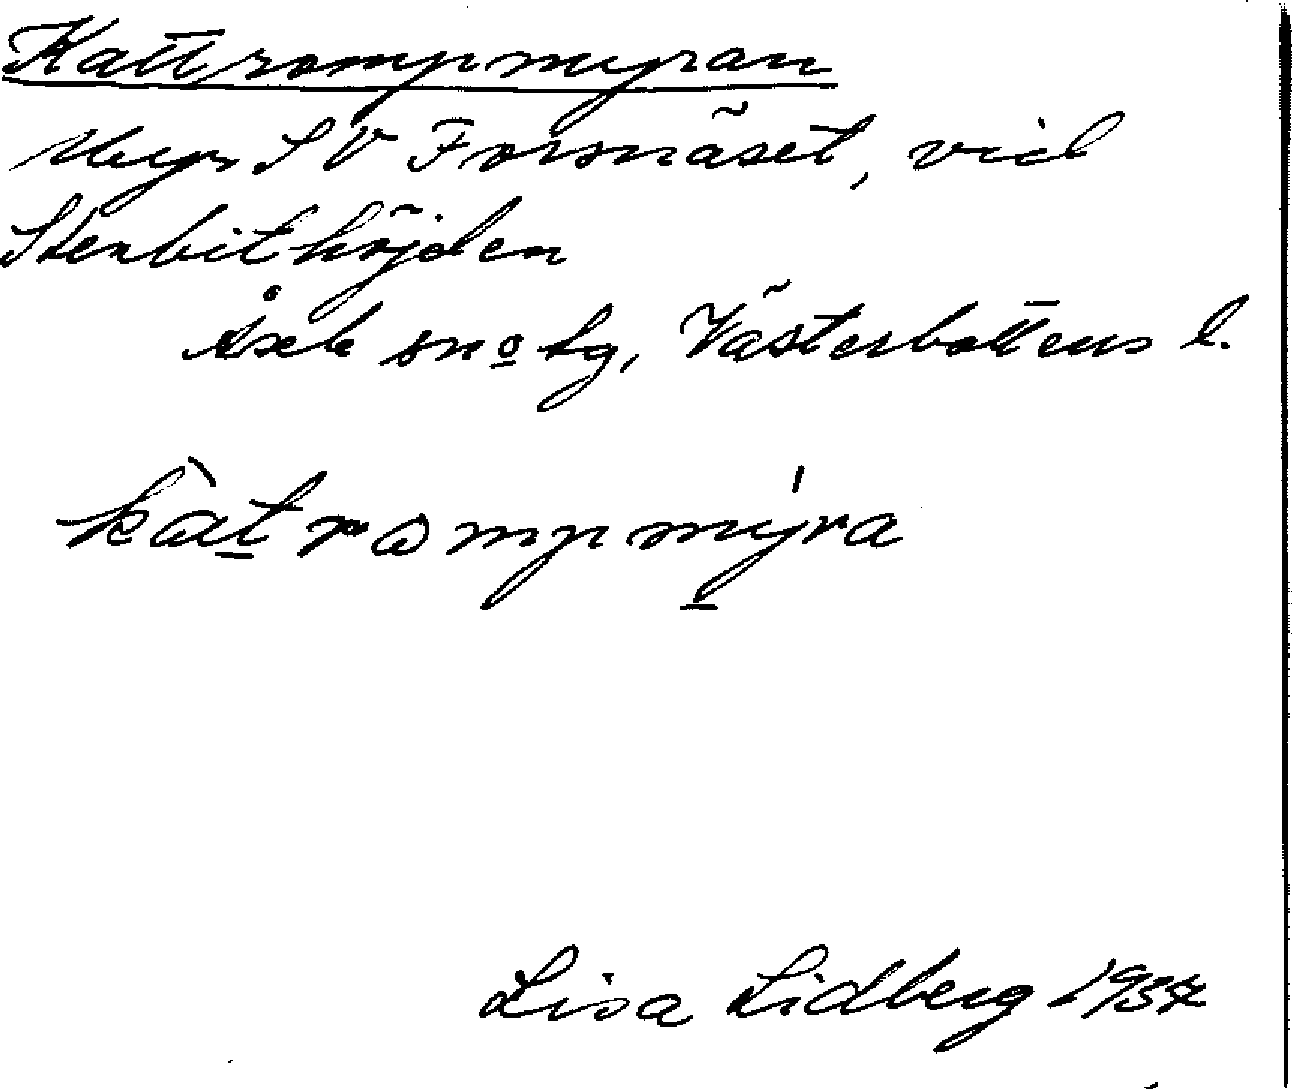 Kattrompmyran
Myr SV Formäset, vid
Stenbithöjden
Åsele sn o tg, Västerbottens l.
kàt̲rompmý̲ra
Lisa Lidberg 1954